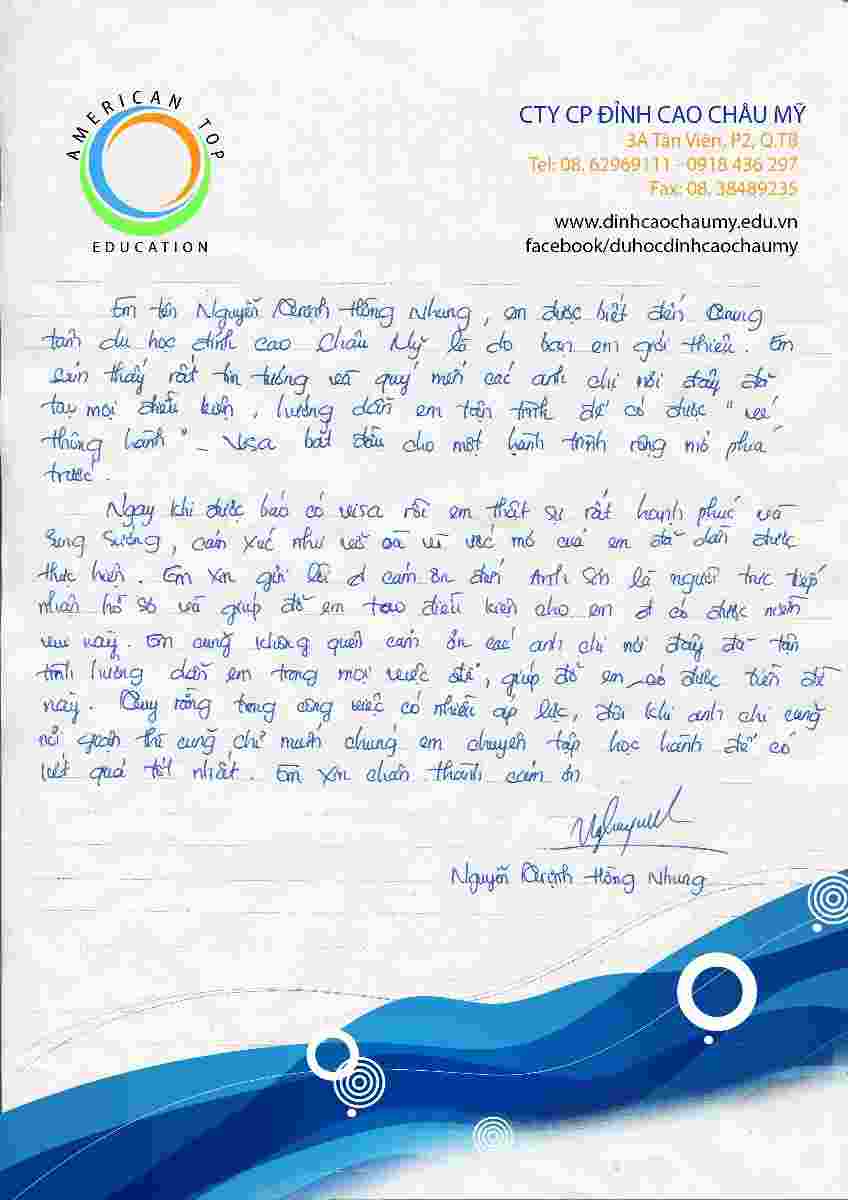 AMERICAN TOP
EDUCATION
CTY CP ĐỈNH CAO CHÂU MỸ
3A Tản Viên, P2, Q.TB
Tel: 08. 62969111 - 0918 436 297
Fax: 08. 38489235
www.dinhcaochaumy.edu.vn
facebook/duhocdinhcaochaumy
Em tên Nguyễn Quỳnh Hồng Nhung, em được biết đến trung
tâm du học đỉnh cao Châu Mỹ là do bạn em giới thiệu. Em
thấy rất tin tưởng và quý mến các anh chị nơi đây đã
tạo mọi điều kiện, hướng dẫn em tận tình để có được "vé
thông hành" - Visa bắt đầu cho một hành trình rộng mở phía
trước.
Ngay khi được báo có visa rồi em thật sự rất hạnh phúc và
sung sướng, cảm xúc như vỡ oà vì ước mơ của em đã dần được
thực hiện. Em xin gửi lời cảm ơn đến Anh Sơn là người trực tiếp
nhận hồ sơ và giúp đỡ em tạo điều kiện cho em có được niềm
vui này. Em cũng không quên cảm ơn các anh chị nơi đây đã tận
tình hướng dẫn em trong mọi việc để, giúp đỡ em có được tiền đề
này. Tuy rằng trong công việc có nhiều áp lực, đôi khi anh chị cũng
thì cũng chỉ muốn chúng em chuyên tập học hành để có
kết quả tốt nhất. Em xin chân thành cảm ơn
Nguyễn Quỳnh Hồng Nhung